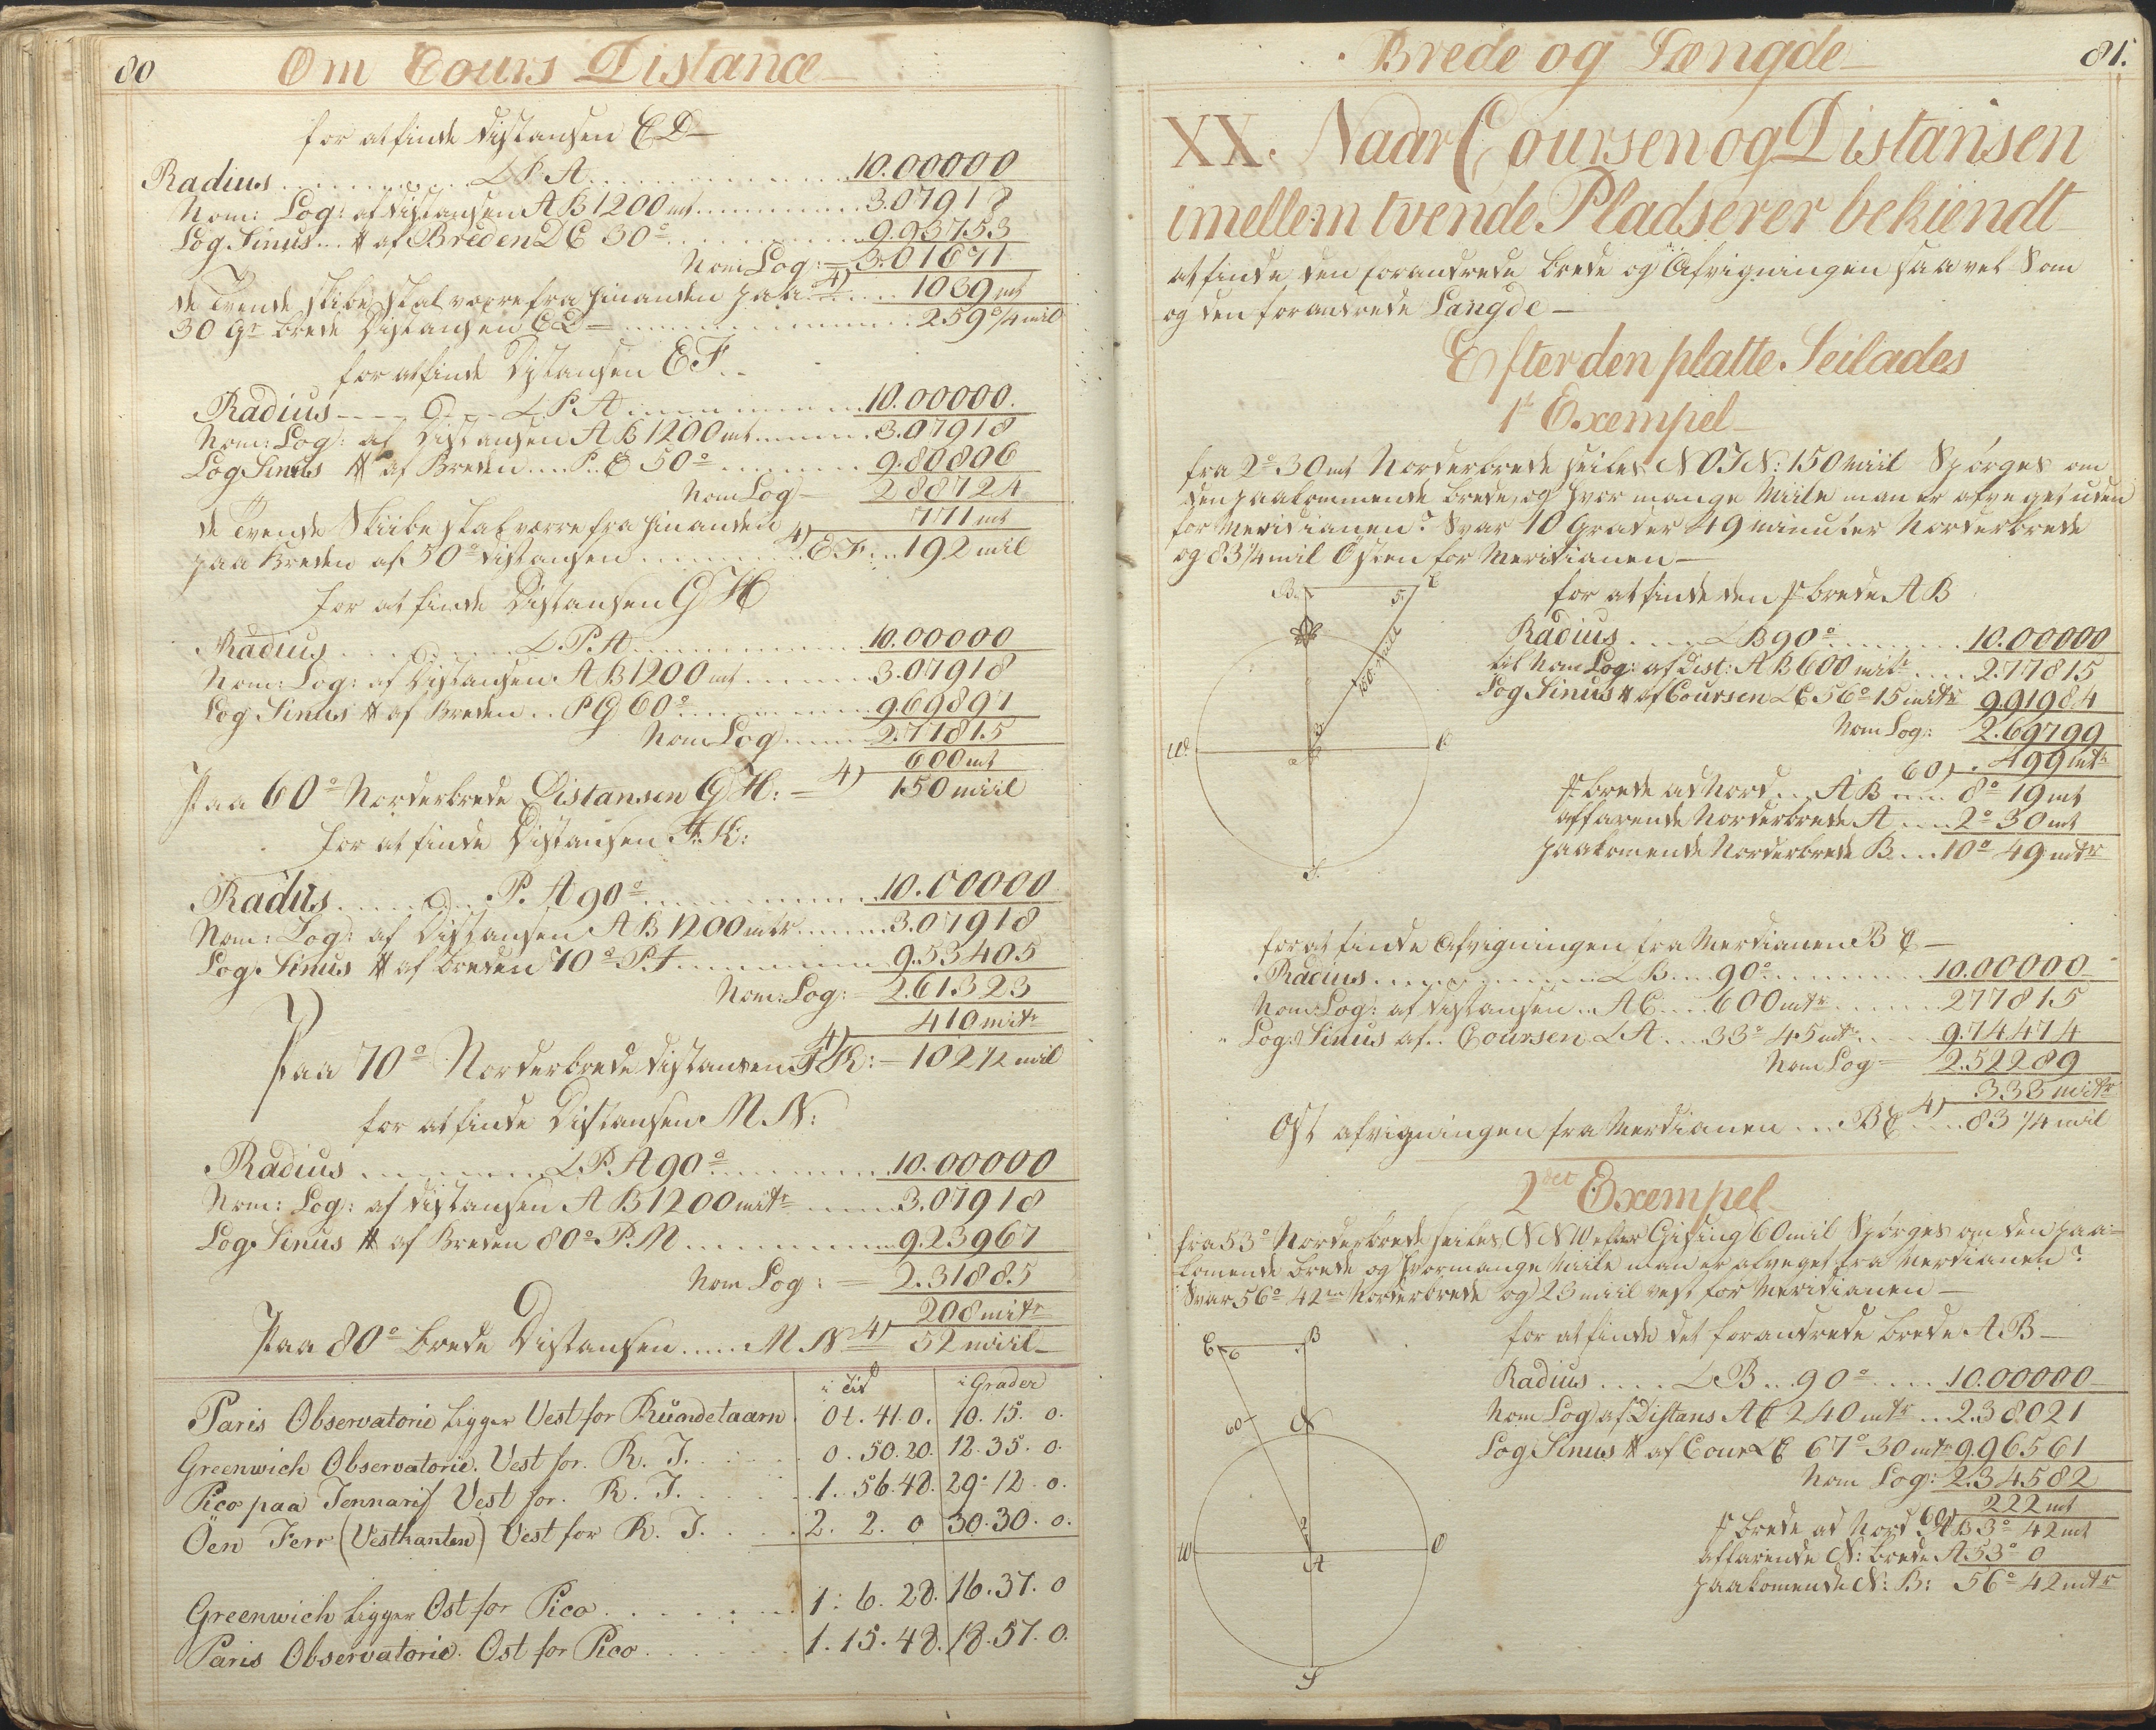 80
Om Cours Distance
for at finde Distansen ED
Radius ....... ∠ P. A ....... 10.00000
Nom: Log: af Distansen AB 1200 mt ....... 3.07918
Log Sinus # af Breden D E 30° ....... 9.93753
Nom Log: = 3.01671
de Tvende skibe skal værre fra hinanden paa 4) 1039 mt
30 Gr brede Distansen ED = ....... 259 3/4 mil
for at finde Distansen EF.
Radius ....... ∠ P. A ....... 10.00000.
Nom: Log: af Distansen AB 1200 mt ....... 3.07918
Log Sinus # af Breden .... P. E 50° ....... 9.80806
Nom Log = 2 88724
de Tvende Skiibe skal værre fra hinanden 771 mt
paa Breden af 50° distansen ....... 4) EF ... 192 mil
for at finde Distansen GH
Radius ....... ∠ P. A ....... 10.00000
Nom: Log: af Distansen AB 1200 mt ....... 3.07918
Log Sinus # af Breden .. PG 60° ....... 9.69897
Nom Log ....... 2.77815
600 mt
Paa 60° Norderbrede Distansen GH: = 4) 150 miil
for at finde Distansen J. K:
Radius ....... P. A 90° ....... 10.00000
Nom: Log: af Distansen AB 1200 mtr ....... 3.07918
Log. Sinus # af breden 70° P. J ....... 9.53405
Nom: Log: = 2.61323
410 mitr
Paa 70° Norderbrede distansen 4) JK: = 102 1/2 mil
for at finde Distansen M. N:
Radius ....... ∠ P. A 90° ....... 10.00000
Nom: Log: af distansen AB 1200 mitr ....... 3.07918
Log. Sinus # af Breden 80° P. M ....... 9.23967
Nom Log: = 2.31885
208 mitr
Paa 80° brede Distansen ..... M. N. 4) 52 miil
i Tid i Grader
Paris Observatorie Ligger Vest for Rundetaarn 0t. 41. 0. 10. 15. 0.
Greenwich Observatorie. Vest for. R. T. 0. 50. 20. 12. 35. 0.
Pico paa Tennarif Vest for. R. T. 1. 56. 48. 29. 12. 0.
Öen Ferr (Vestkanten) Vest for R. T. 2. 2. 0 30. 30. 0.
Greenwich Ligger Ost for Pico 1. 6. 28. 16. 37. 0
Paris Observatorie. Ost for Pico 1. 15. 48. 18. 57. 0.
Brede og Længde
81.
XX. Naar Coursen og Distansen
imellem tvende Pladserer bekiendt
at finde den forandrede brede og Afvigningen saavel som
og den forandrede Langde
Efter den platte Seilades
1t Exempel
fra 2° 30 mt Norderbrede seiles NOTN: 150 Miil Spørges om
den paakommende brede, og hvor mange Miile man er afveget uden
for Meridianen? Svar 10 Grader 49 minuter Norderbrede
og 83 1/4 mil Østen for Meridianen
B.
5
C
150 Miil
W
O
S
for at finde den f brede AB
Radius .... ∠ B 90° ....... 10.00000
til Nom Log: af Dist: AB 600 mitr .... 2.77815
Log Sinus # af Coursen ∠ C 56° 15 mitr 9.91984
Nom Log: 2.69799
60) 499 mtr
f brede ad Nord ... AB .... 8° 19 mt
affarende Norderbrede A .... 2° 30 mt
paakomende Norderbrede B ... 10° 49 mtr
for at finde Afvigningen fra Merdianen B C
Radius ....... ∠ B .... 90° ....... 10.00000
Nom: Log: af distansen .. A C .... 600 mtr ....... 2 77815
Log: Sinus af .. Coursen ∠ A ... 33° 45 mtr ..... 9.74474
Nom Log = 2.52289
333 mitr
Ost afvigningen fra Merdianen ... BC 4) .... 83 1/4 mil
2det Exempel
fra 53° Norderbrede seiles NNW efter Gisning 60 mil Spørges om den paa=
komende brede og hvormange Miile man er afveget fra Merdianen?
Svar 56° 42m Norderbrede og 23 miil vest for Meridianen
C
6
B
60
N
2
W
A
O
S
for at finde det forandrede brede AB
Radius .... ∠ B .. 90° .... 10.00000
Nom Log af Distans AC 240 mtr ... 2.38021
Log Sinus # af Cour ∠ C 67° 30 mtr 9.96561
Nom Log: 2.34582
222 mt
f brede ad Nord 60) AB 3° 42 mt
affarende N: brede A 53° 0
paakomende N: B: 56° 42 mtr